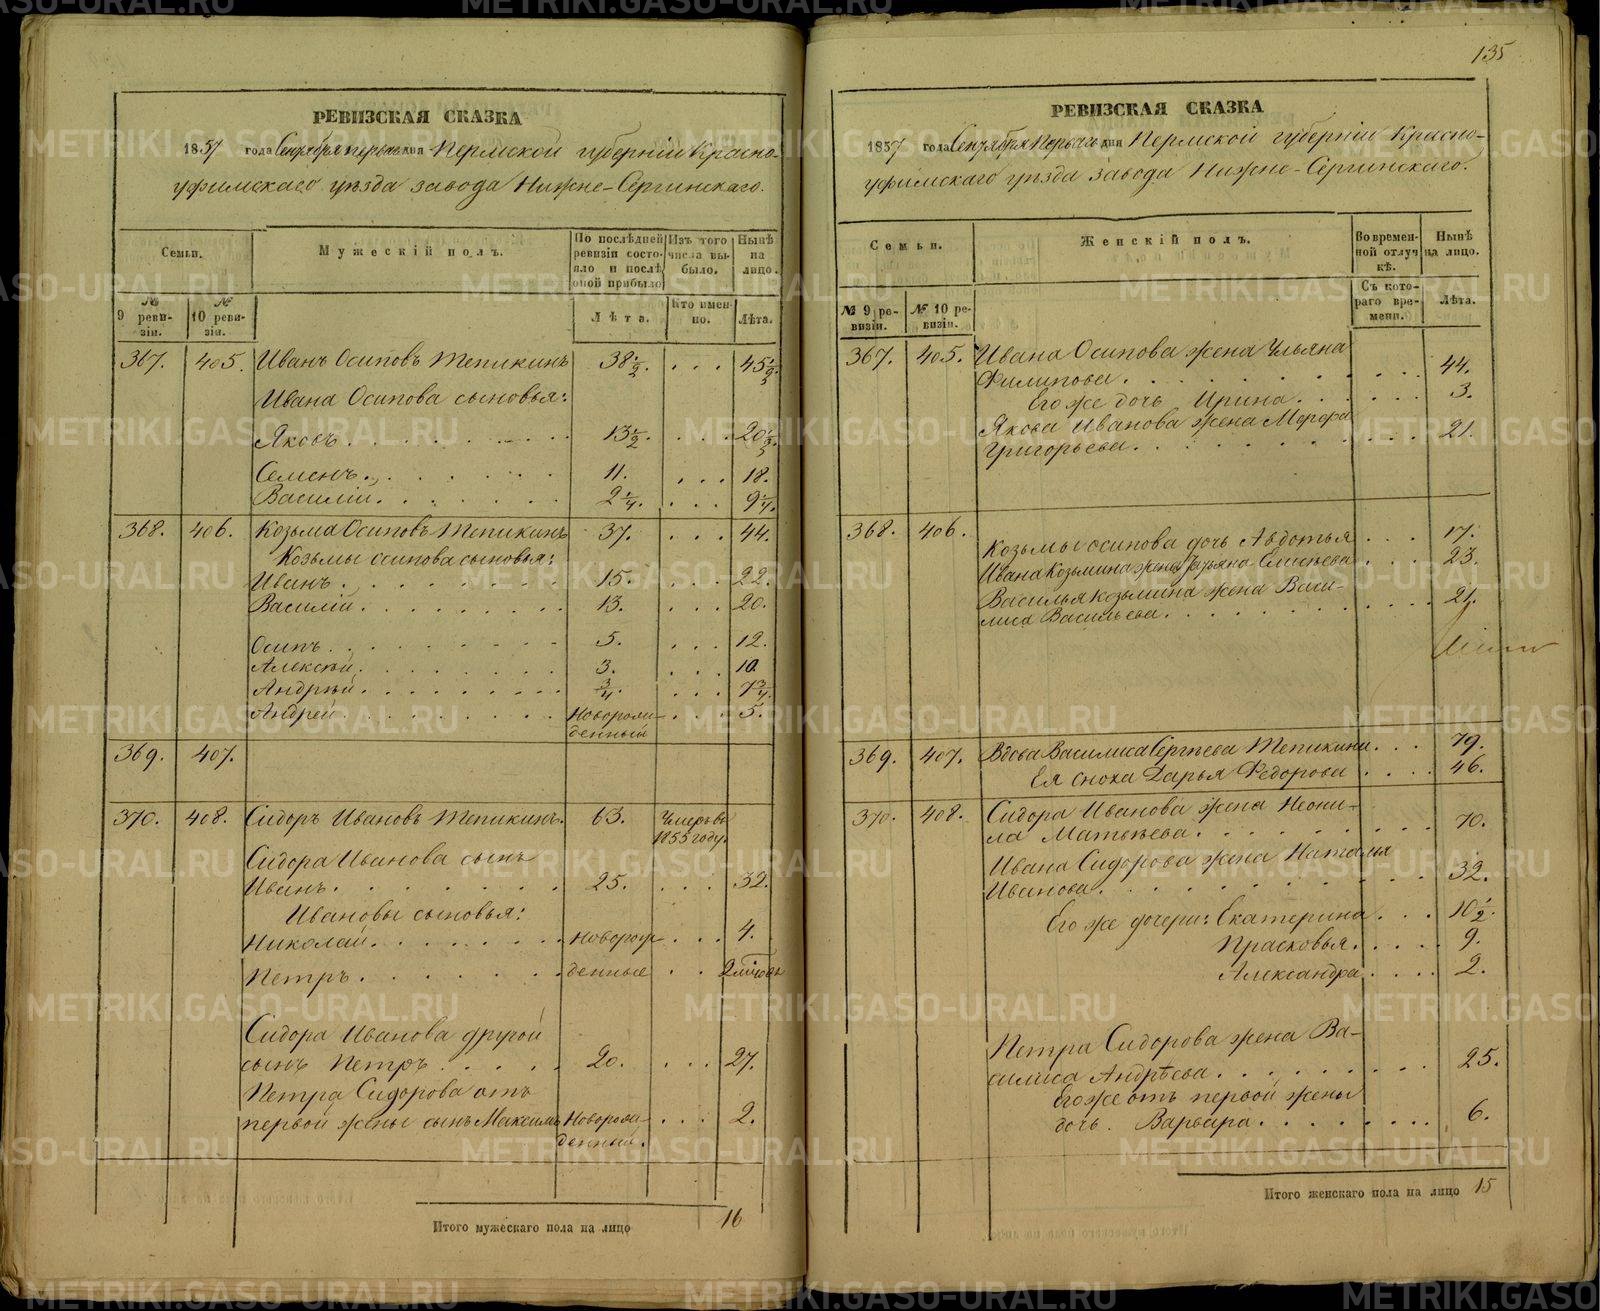 РЕВИЗСКАЯ СКАЗКА
1857 года Сентября перваго дня Пермской губерніи Красно-
уфимскаго уѣзда завода Нижне-Сергинскаго.
Семьи.
Мужескій полъ.
По послѣдней ревизіи состояло и послѣ оной прибыло
Изъ того числа выбыло.
Нынѣ на лицо.
№ 9 ревизіи.
№ 10 ревизіи.
Лѣта.
Кто именно.
Лѣта.
367. 405. Иванъ Осиповъ Тепикинъ 38 1/2. . . . 45 1/2
Ивана Осипова сыновья:
Яковъ 13 1/2. . . . 20 1/2
Семенъ 11. . . . 18.
Василій 2 1/4. . . . 9 1/4.
368. 406. Козьма Осиповъ Тепикинъ 37. . . . 44.
Козьмы Осипова сыновья:
Иванъ 15. . . . 22.
Василій 13. . . . 20.
Осипъ 5. . . . 12.
Алексѣй 3. . . . 10.
Андрѣй 3/4. . . . 7 3/4.
Андрей Новорож- . . . 5.
денный
369. 407.
370. 408. Сидоръ Ивановъ Тепикинъ. 63. Умеръ въ
1855 году.
Сидора Иванова сынъ
Иванъ 25. . . . 32.
Ивановы сыновья:
Николай Новорож . . . 4.
Петръ денные . . 2
Сидора Иванова другой
сынъ Петръ 20. . . . 27.
Петра Сидорова отъ
первой жены сынъ Максимъ Новорож- . . . 2.
денный.
Итого мужескаго пола на лицо 16
135
РЕВИЗСКАЯ СКАЗКА
1857 года Сентября Перваго дня Пермской губерніи Красно-
уфимскаго уѣзда завода Нижне-Сергинскаго.
Семьи.
Женскій полъ.
Во временной отлучкѣ.
Нынѣ на лицо.
№ 9 ревизіи.
№ 10 ревизіи.
Съ котораго времени.
Лѣта.
367. 405. Ивана Осипова жена Ульяна
Филипова 44.
Его же дочь Ирина 3.
Якова Иванова жена Марфа
Григорьева 21.
368. 406. Козьмы Осипова дочь Авдотья . . . 17.
Ивана Козьмина жена Татьяна Елисеева . . . 23.
Василья Козьмина жена Васи-
лиса Васильева 21.
369. 407. Вдова Василиса Сергѣева Тепикина . . . 79.
Ея сноха Дарья Федорова . . . 46.
370. 408. Сидора Иванова жена Неони-
ла Матвѣева 70.
Ивана Сидорова жена Наталья
Иванова 32.
Его же дочери: Екатерина . . . 10 1/2.
Прасковья 9.
Александра 2.
Петра Сидорова жена Ва-
силиса Андрѣева 25.
Его же отъ первой жены
дочь. Варвара 6.
Итого женскаго пола на лицо 15
METRIKI.GASO-URAL.RU